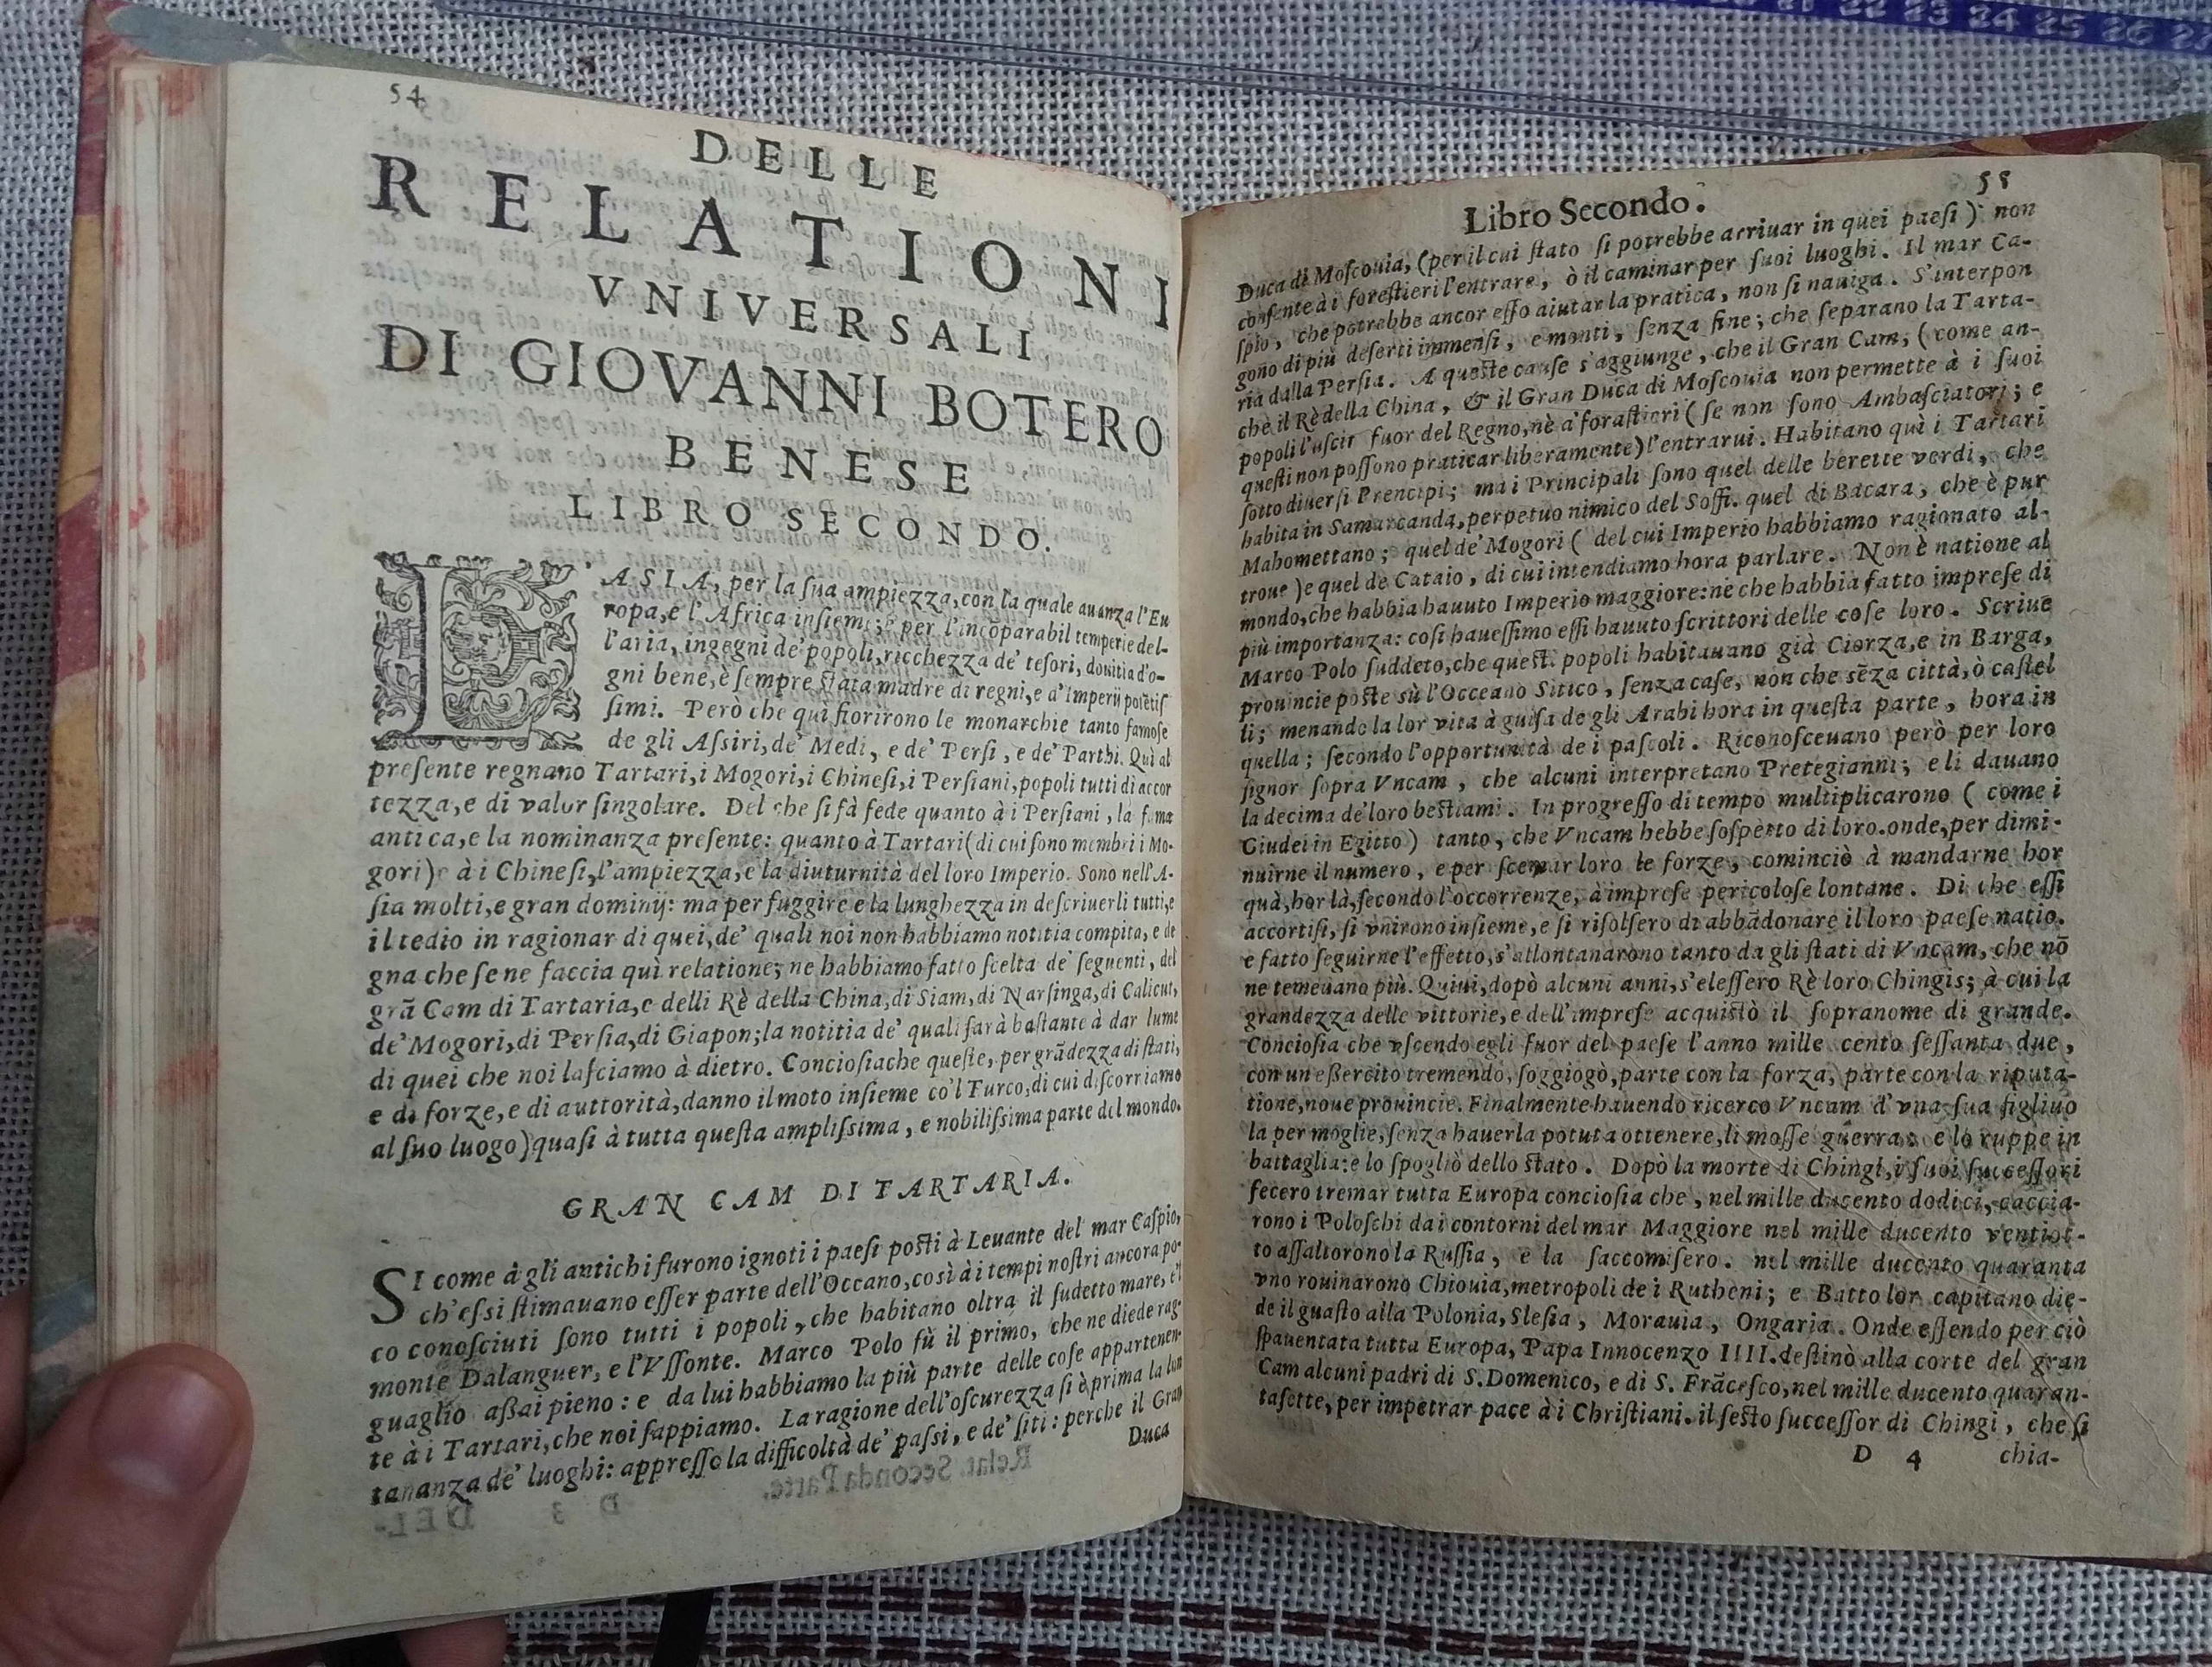 54
DELLE
RELATIONI
VNIVERSALI
DI GIOVANNI BOTERO
BENESE
LIBRO SECONDO.
L'ASIA, per la ſua ampiezza, con la quale auanza l'Eu
ropa, e l'Africa inſieme; e per l'incõparabil temperie del-
l'aria, ingegni de' popoli, ricchezza de' teſori, douitia d'o-
gni bene, è ſempre ſtata madre di regni, e d'Imperij potẽtiſ
ſimi. Però che quì fiorirono le monarchie tanto famoſe
de gli Aſsiri, de' Medi, e de' Perſi, e de' Parthi. Quì al
preſente regnano Tartari, i Mogori, i Chineſi, i Perſiani, popoli tutti di accor
tezza, e di valor ſingolare. Del che ſi fà fede quanto à i Perſiani, la fama
antica, e la nominanza preſente: quanto à Tartari (di cui ſono membri i Mo-
gori) e à i Chineſi, l'ampiezza, e la diuturnità del loro Imperio. Sono nell'A-
ſia molti, e gran dominij: ma per fuggire e la lunghezza in deſcriuerli tutti, e
il tedio in ragionar di quei, de' quali noi non habbiamo notitia compita, e de
gna che ſe ne faccia quì relatione; ne habbiamo fatto ſcelta de' ſeguenti, del
grã Cam di Tartaria, e delli Rè della China, di Siam, di Narſinga, di Calicut,
de' Mogori, di Perſia, di Giapon; la notitia de' quali ſarà baſtante à dar lume
di quei che noi laſciamo à dietro. Concioſiache queſte, per grãdezza di ſtati,
e di forze, e di auttorità, danno il moto inſieme co'l Turco, di cui diſcorriamo
al ſuo luogo) quaſi à tutta queſta ampliſsima, e nobiliſsima parte del mondo.
GRAN CAM DI TARTARIA.
SI come à gli antichi furono ignoti i paeſi poſti à Leuante del mar Caſpio,
ch'eſsi ſtimauano eſſer parte dell'Occano, così à i tempi noſtri ancora po-
co conoſciuti ſono tutti i popoli, che habitano oltra il ſudetto mare, e'l
monte Dalanguer, e l'Vſſonte. Marco Polo fù il primo, che ne diede rag-
guaglio aßai pieno: e da lui habbiamo la più parte delle coſe appartenen-
te à i Tartari, che noi ſappiamo. La ragione dell'oſcurezza ſi è prima la lon
tananza de' luoghi: appreſſo la difficoltà de' paſsi, e de' ſiti: perche il Gran
Duca
Libro Secondo. 55
Duca di Moſcouia, (per il cui ſtato ſi potrebbe arriuar in quei paeſi) non
conſente à i foreſtieri l'entrare, ò il caminar per ſuoi luoghi. Il mar Ca-
ſpio, che potrebbe ancor eſſo aiutar la pratica, non ſi nauiga. S'interpon
gono di più deſerti immenſi, e monti, ſenza fine; che ſeparano la Tarta-
ria dalla Perſia. A queſte cauſe s'aggiunge, che il Gran Cam, (come an-
che il Rè della China, & il Gran Duca di Moſcouia non permette à i ſuoi
popoli l'uſcir fuor del Regno, nè a' foraſtieri (ſe non ſono Ambaſciatori; e
queſti non poſſono praticar liberamente) l'entrarui. Habitano quì i Tartari
ſotto diuerſi Prencipi; ma i Principali ſono quel delle berette verdi, che
habita in Samarcanda, perpetuo nimico del Soffi. quel di Bacara, che è pur
Mahomettano; quel de' Mogori (del cui Imperio habbiamo ragionato al-
troue) e quel de Cataio, di cui intendiamo hora parlare. Non è natione al
mondo, che habbia hauuto Imperio maggiore: nè che habbia fatto impreſe di
più importanza: coſi haueſſimo eſſi hauuto ſcrittori delle coſe loro. Scriue
Marco Polo ſuddeto, che queſti popoli habitauano già Ciorza, e in Barga,
prouincie poſte sù l'Occeano Sitico, ſenza caſe, non che sẽza città, ò caſtel
li; menando la lor vita à guiſa de gli Arabi hora in queſta parte, hora in
quella; ſecondo l'opportunità de i paſcoli. Riconoſceuano però per loro
ſignor ſopra Vncam, che alcuni interpretano Pretegianni; e li dauano
la decima de' loro beſtiami. In progreſſo di tempo multiplicarono (come i
Giudei in Egitto) tanto, che Vncam hebbe ſoſpetto di loro. onde, per dimi-
nuirne il numero, e per ſcemar loro le forze, cominciò à mandarne hor
quà, hor là, ſecondo l'occorrenze, à impreſe pericoloſe lontane. Di che eſſi
accortiſi, ſi vnirono inſieme, e ſi riſolſero di abbãdonare il loro paeſe natio.
e fatto ſeguirne l'effetto, s'allontanarono tanto da gli ſtati di Vncam, che nõ
ne temeuano più. Quiui, dopò alcuni anni, s'eleſſero Rè loro Chingis; à cui la
grandezza delle vittorie, e dell'impreſe acquiſtò il ſopranome di grande.
Concioſia che vſcendo egli fuor del paeſe l'anno mille cento ſeſſanta due,
con un eßercito tremendo, ſoggiogò, parte con la forza, parte con la riputa-
tione, noue prouincie. Finalmente hauendo ricerco Vncam d'vna ſua figliuo
la per moglie, ſenza hauerla potuta ottenere, li moſſe guerra: e lo ruppe in
battaglia: e lo ſpogliò dello ſtato. Dopò la morte di Chingi, i ſuoi ſucceſſori
fecero tremar tutta Europa concioſia che, nel mille ducento dodici, caccia-
rono i Poloſchi da i contorni del mar Maggiore nel mille ducento ventiot-
to aſſaltorono la Ruſſia, e la ſaccomiſero. nel mille ducento quaranta
vno rouinarono Chiouia, metropoli de i Rutheni; e Batto lor capitano die-
de il guaſto alla Polonia, Sleſia, Morauia, Ongaria. Onde eſſendo per ciò
ſpauentata tutta Europa, Papa Innocenzo IIII. deſtinò alla corte del gran
Cam alcuni padri di S. Domenico, e di S. Frãceſco, nel mille ducento quaran-
taſette, per impetrar pace à i Chriſtiani. il ſeſto ſucceſſor di Chingi, che ſi
D 4 chia-
21 22 23 24 25 26